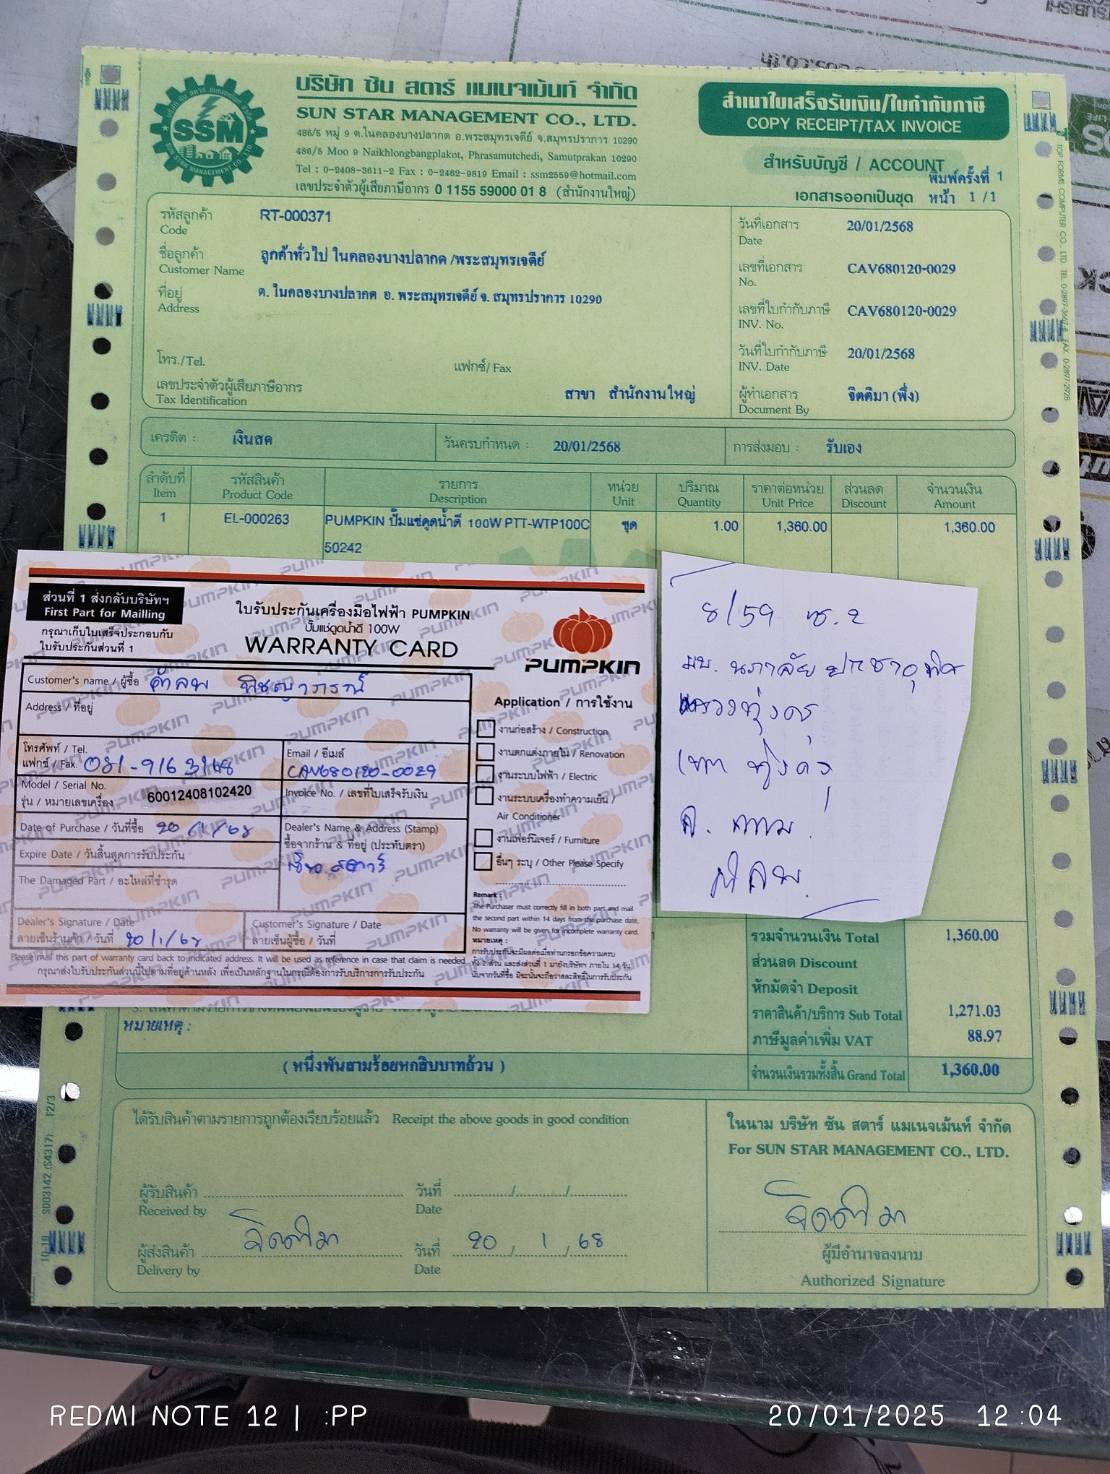 SSM
บริษัท ซัน สตาร์ แมเนจเม้นท์ จำกัด
SUN STAR MANAGEMENT CO., LTD.
486/5 หมู่ 9 ต.ในคลองบางปลากด อ.พระสมุทรเจดีย์ จ.สมุทรปราการ 10290
486/5 Moo 9 Naikhlongbangplakot, Phrasamutchedi, Samutprakan 10290
Tel : 0-2408-3611-2 Fax : 0-2462-9819 Email : ssm2559@hotmail.com
เลขประจำตัวผู้เสียภาษีอากร 0 1155 59000 01 8 (สำนักงานใหญ่)
สำเนาใบเสร็จรับเงิน/ใบกำกับภาษี
COPY RECEIPT/TAX INVOICE
สำหรับบัญชี / ACCOUNT
พิมพ์ครั้งที่ 1
เอกสารออกเป็นชุด หน้า 1/1
รหัสลูกค้า RT-000371
Code
ชื่อลูกค้า ลูกค้าทั่วไป ในคลองบางปลากด /พระสมุทรเจดีย์
Customer Name
ที่อยู่ ต. ในคลองบางปลากด อ. พระสมุทรเจดีย์ จ. สมุทรปราการ 10290
Address
โทร./Tel. แฟกซ์/Fax
เลขประจำตัวผู้เสียภาษีอากร สาขา สำนักงานใหญ่
Tax Identification
วันที่เอกสาร 20/01/2568
Date
เลขที่เอกสาร CAV680120-0029
No.
เลขที่ใบกำกับภาษี CAV680120-0029
INV. No.
วันที่ใบกำกับภาษี 20/01/2568
INV. Date
ผู้ทำเอกสาร จิตติมา (พึ่ง)
Document By
เครดิต : เงินสด วันครบกำหนด : 20/01/2568 การส่งมอบ : รับเอง
ลำดับที่ รหัสสินค้า รายการ หน่วย ปริมาณ ราคาต่อหน่วย ส่วนลด จำนวนเงิน
Item Product Code Description Unit Quantity Unit Price Discount Amount
1 EL-000263 PUMPKIN ปั๊มแช่ดูดน้ำดี 100W PTT-WTP100C ชุด 1.00 1,360.00 1,360.00
50242
ส่วนที่ 1 ส่งกลับบริษัทฯ
First Part for Mailling
กรุณาเก็บใบเสร็จประกอบกับ
ใบรับประกันส่วนที่ 1
ใบรับประกันเครื่องมือไฟฟ้า PUMPKIN
ปั๊มแช่ดูดน้ำดี 100W
WARRANTY CARD
PUMPKIN
Customer's name / ผู้ซื้อ
Address / ที่อยู่
โทรศัพท์ / Tel.
แฟกซ์ / Fax. 081-916 3148
Email / อีเมล์
CAV680120-0029
Model / Serial No.
รุ่น / หมายเลขเครื่อง 60012408102420
Invoice No. / เลขที่ใบเสร็จรับเงิน
Date of Purchase / วันที่ซื้อ 20/1/68
Dealer's Name & Address (Stamp)
ชื่อจากร้าน & ที่อยู่ (ประทับตรา)
ซัน สตาร์
Expire Date / วันสิ้นสุดการรับประกัน
The Damaged Part / อะไหล่ที่ชำรุด
Dealer's Signature / Date
ลายเซ็นร้านค้า / วันที่ 20/1/68
Customer's Signature / Date
ลายเซ็นผู้ซื้อ / วันที่
Please mail this part of warranty card back to indicated address. It will be used as reference in case that claim is needed.
กรุณาส่งใบรับประกันส่วนนี้ไปตามที่อยู่ด้านหลัง เพื่อเป็นหลักฐานในกรณีต้องการรับบริการการรับประกัน
Application / การใช้งาน
งานก่อสร้าง / Construction
งานตกแต่งภายใน / Renovation
งานระบบไฟฟ้า / Electric
งานระบบเครื่องทำความเย็น /
Air Conditioner
งานเฟอร์นิเจอร์ / Furniture
อื่นๆ ระบุ / Other Please Specify
Remark :
The Purchaser must correctly fill in both part and mail
the second part within 14 days from the purchase date.
No warranty will be given for incomplete warranty card.
หมายเหตุ :
8/59 ซ.2
มบ. นภาลัย ประชาอุทิศ
แขวงทุ่งครุ
เขต ทุ่งครุ
จ. กทม.
รวมจำนวนเงิน Total 1,360.00
ส่วนลด Discount
หักมัดจำ Deposit
ราคาสินค้า/บริการ Sub Total 1,271.03
ภาษีมูลค่าเพิ่ม VAT 88.97
จำนวนเงินรวมทั้งสิ้น Grand Total 1,360.00
หมายเหตุ :
( หนึ่งพันสามร้อยหกสิบบาทถ้วน )
ได้รับสินค้าตามรายการถูกต้องเรียบร้อยแล้ว Receipt the above goods in good condition
ผู้รับสินค้า วันที่
Received by Date
ผู้ส่งสินค้า จิตติมา วันที่ 20 / 1 / 68
Delivery by Date
ในนาม บริษัท ซัน สตาร์ แมเนจเม้นท์ จำกัด
For SUN STAR MANAGEMENT CO., LTD.
จิตติมา
ผู้มีอำนาจลงนาม
Authorized Signature
REDMI NOTE 12 | :PP
20/01/2025 12:04